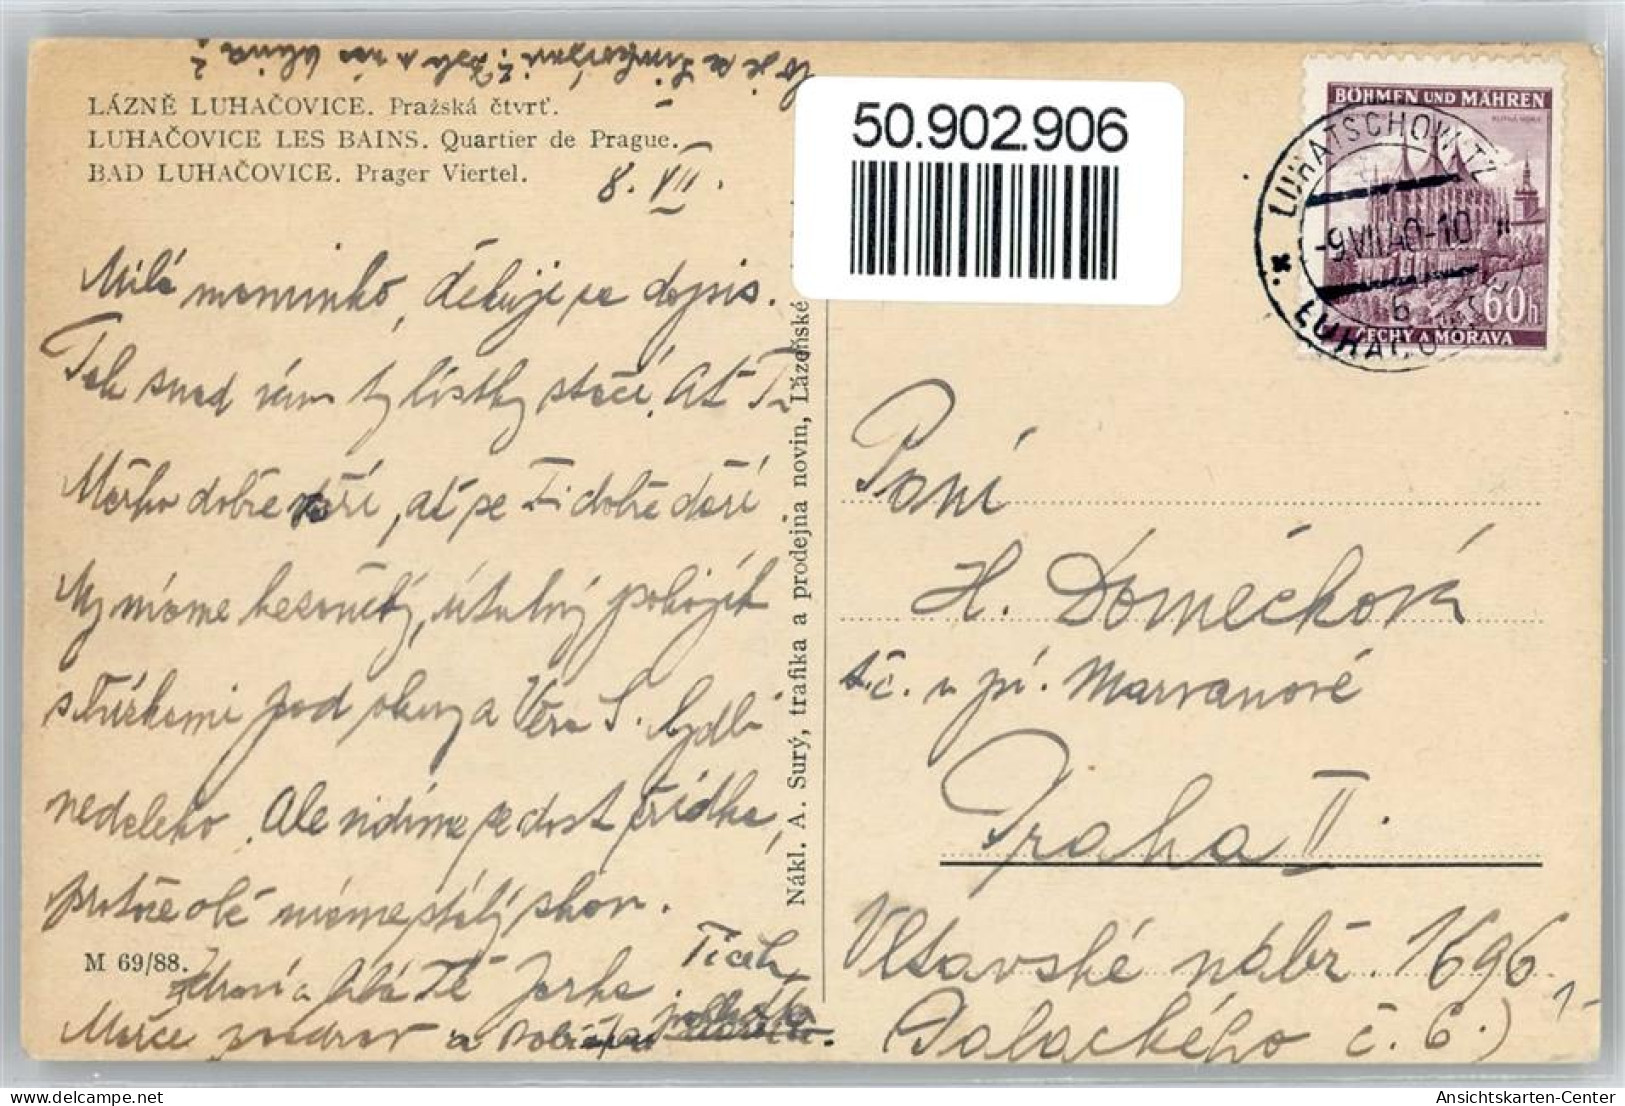 LÁZNĚ LUHAČOVICE. Pražská čtvrť.
LUHAČOVICE LES BAINS. Quartier de Prague.
BAD LUHAČOVICE. Prager Viertel.
8. VII.
Milá maminko, děkuji za dopis.
Tak snad vám ty lístky stačí. Ať Ti
dobře daří, ať se Ti dobře daří.
My máme kesonetý, útulný pokojík
pod okny a Věra S. bydlí
nedaleko. Ale vidíme se dost zřídka,
protože oba máme stálý shon.
Zdraví a líbá Tě Jarka.
pozdrav a
M 69/88.
Nákl. A. Surý, trafika a prodejna novin, Lázeňské
50.902.906
BÖHMEN UND MÄHREN
60h
ČECHY A MORAVA
LUHATSCHOWITZ
-9.VII.40-10
b
Paní
H. Domečková
t.č. u pí. Marvanové
Praha II.
Vltavské nábř. 1696
Palackého č. 6.)
akpool.de
Ansichtskarten-Center